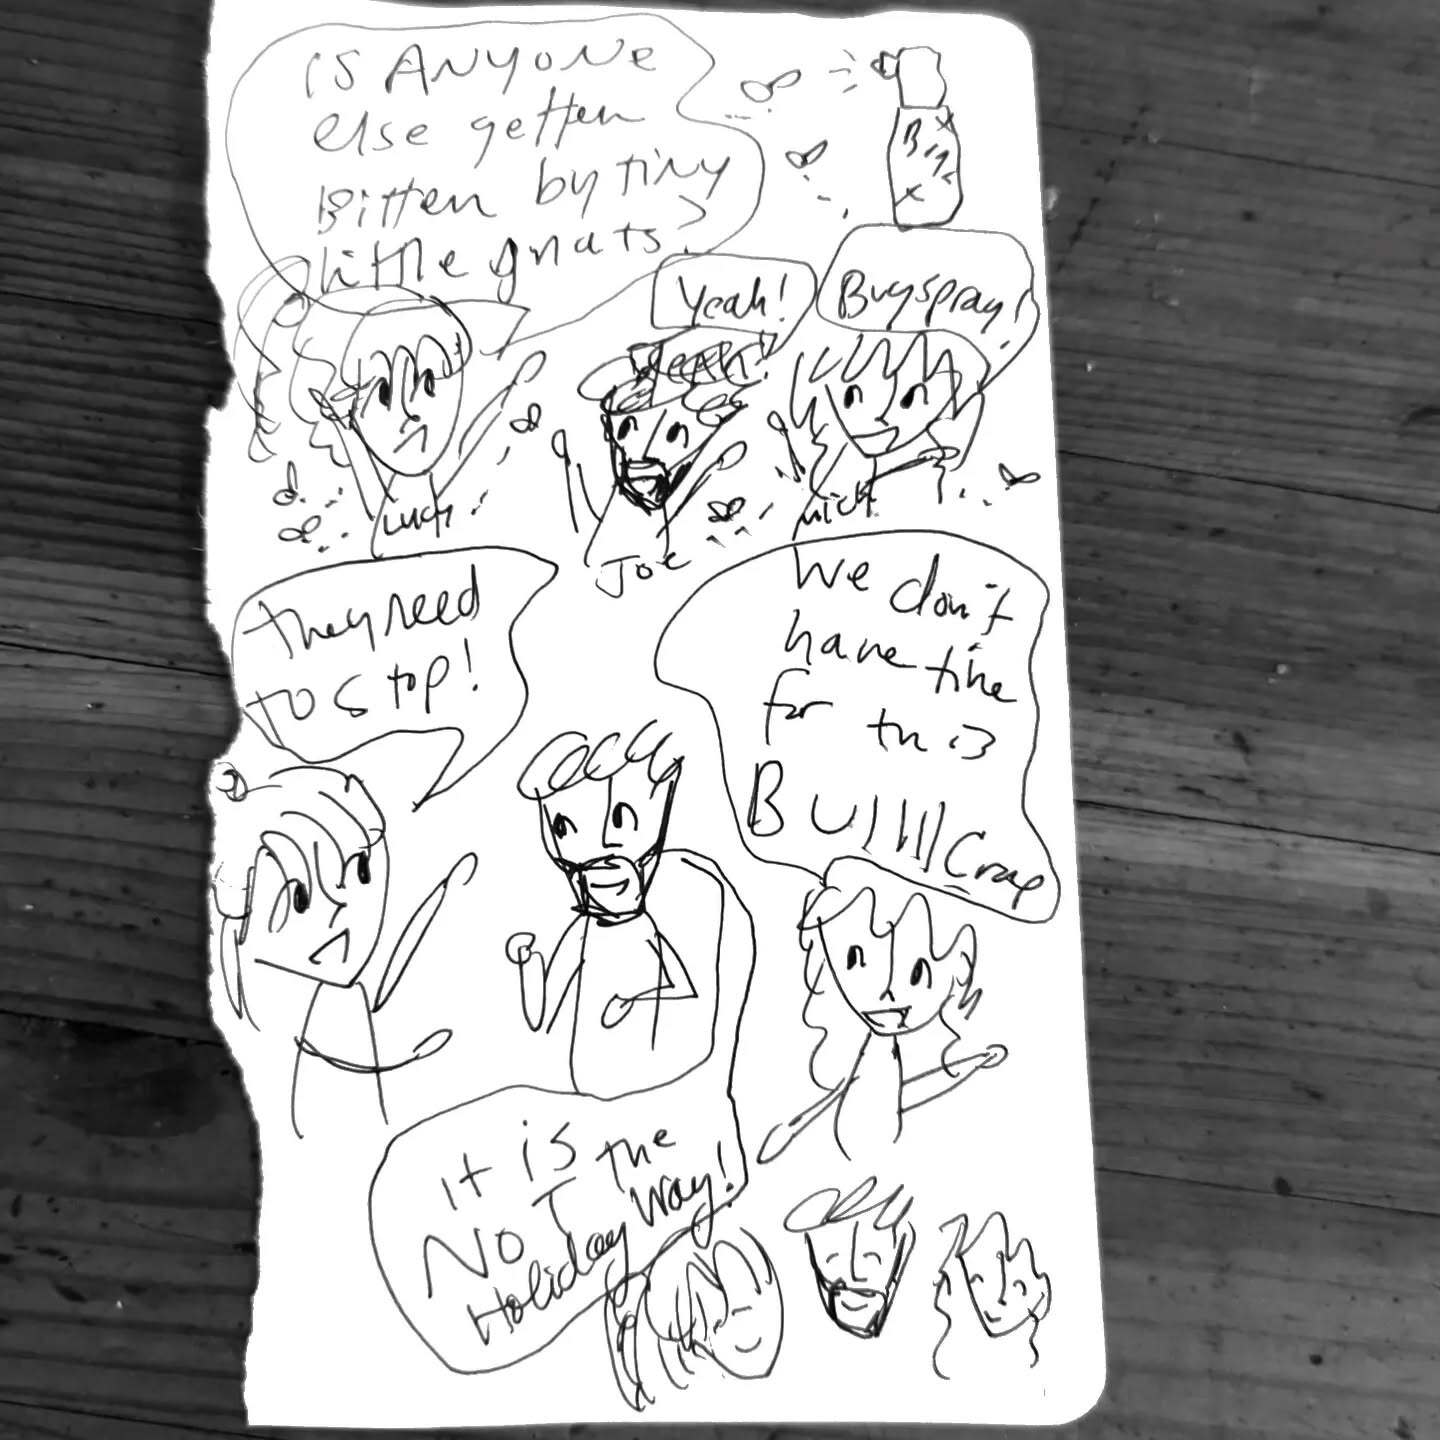 IS ANYONE
else getten
Bitten by tiny
little gnats?
Bug
x
Yeah!
Bugspray!
Yeah!
Lucy
Joe
Mick
they need
to stop!
We don't
have time
for this
BullllCrap
It is
NOT the
Holiday Way!